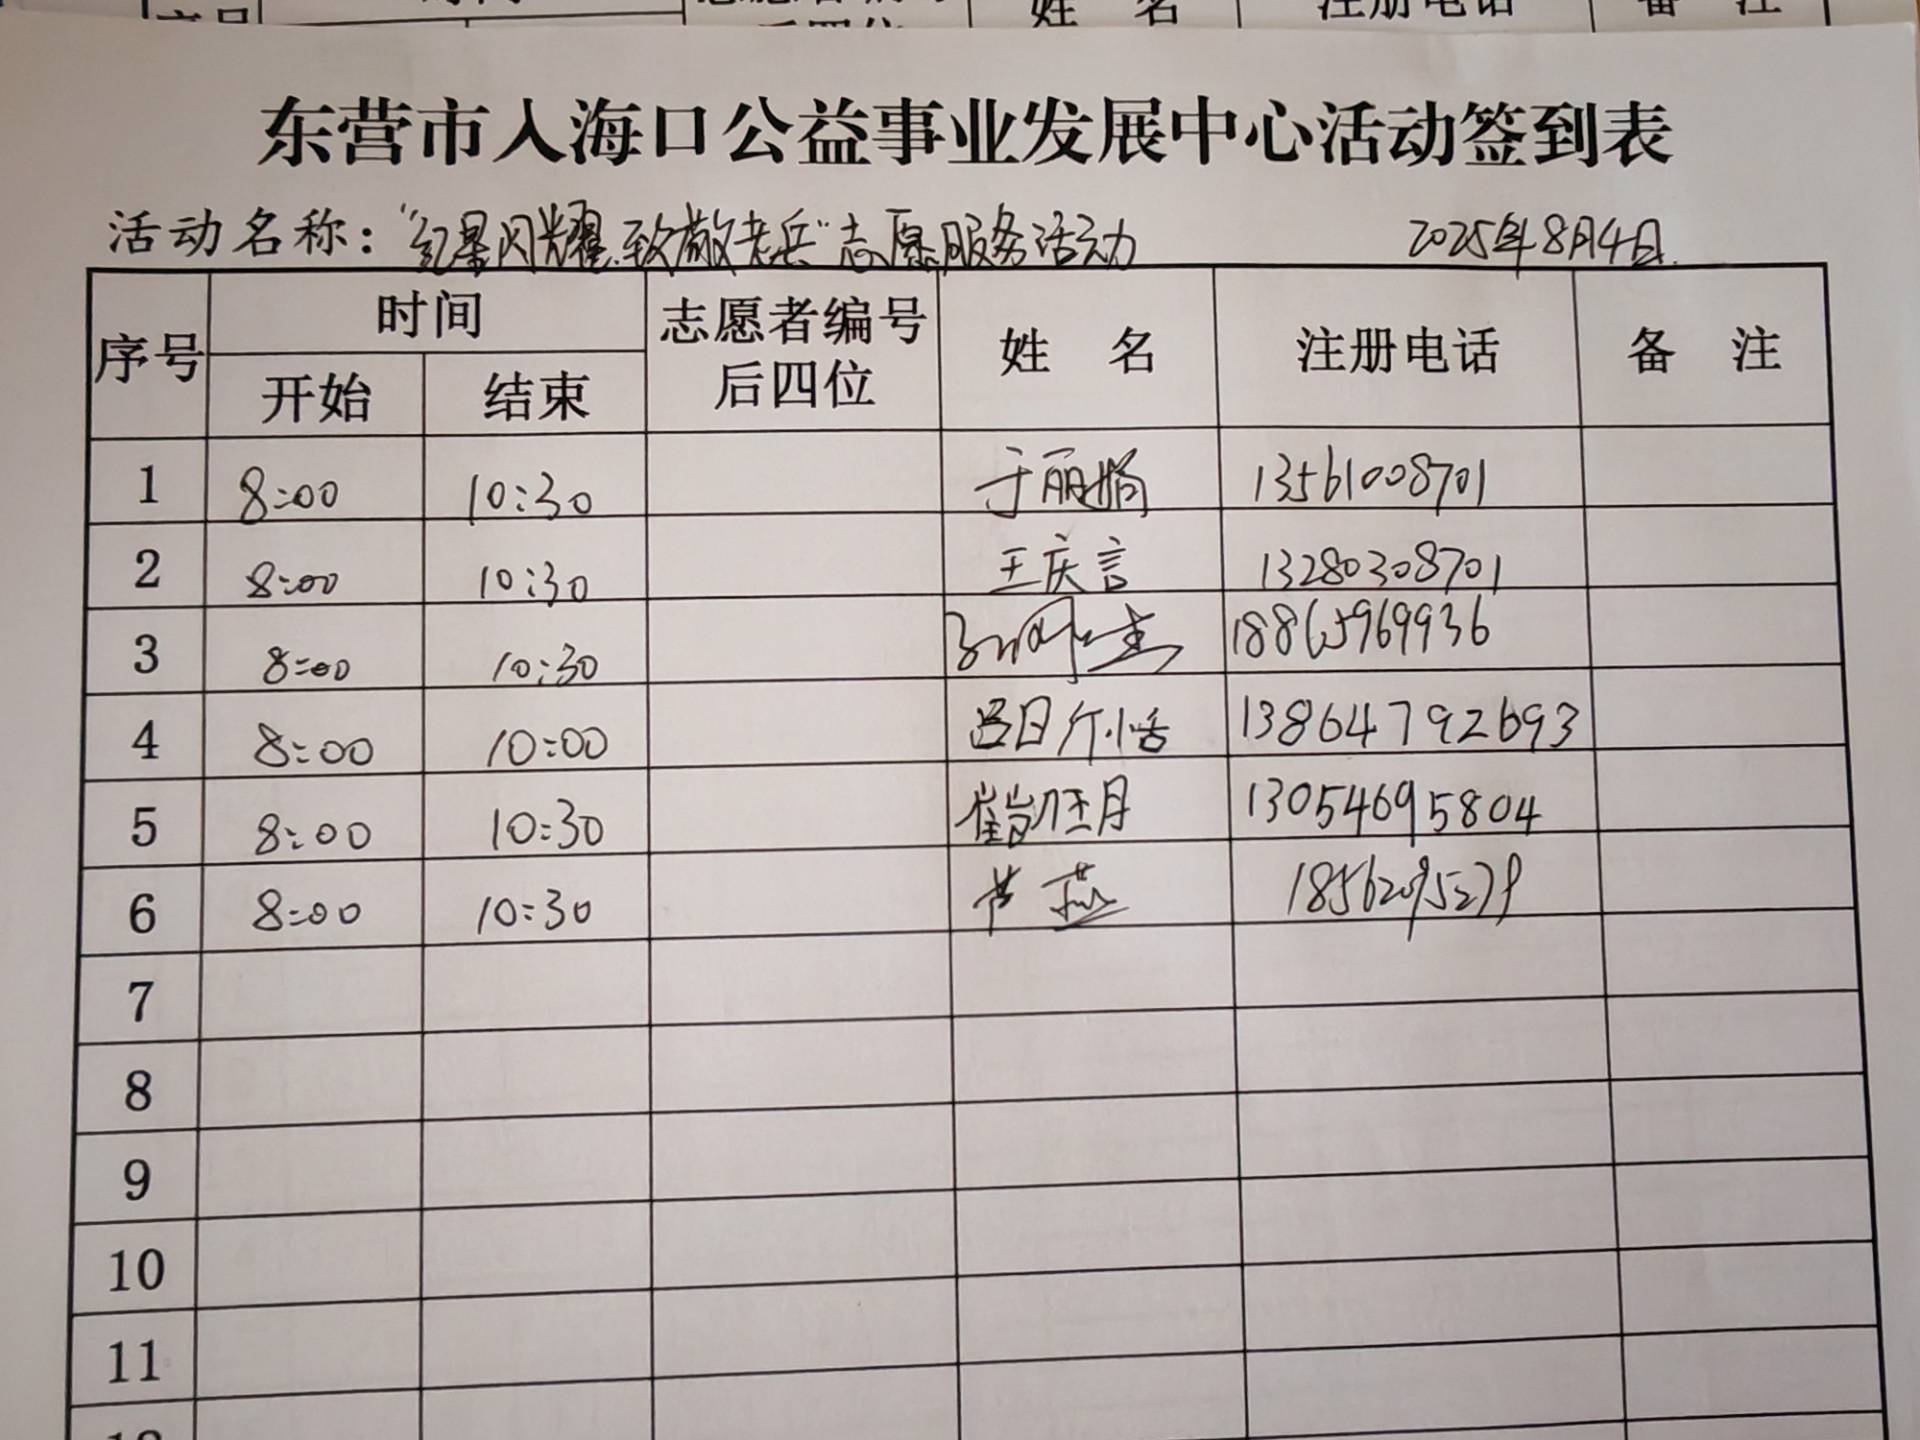 姓 名 注册电话 备 注
东营市入海口公益事业发展中心活动签到表
活动名称：“红星闪耀.致敬老兵”志愿服务活动 2025年8月4日.
序号 时间 志愿者编号后四位 姓 名 注册电话 备 注
开始 结束
1 8:00 10:30 于丽娟 13561008701
2 8:00 10:30 王庆言 13280308701
3 8:00 10:30 18865969936
4 8:00 10:00 13864792693
5 8:00 10:30 13054695804
6 8:00 10:30 芦燕 18562095279
7
8
9
10
11